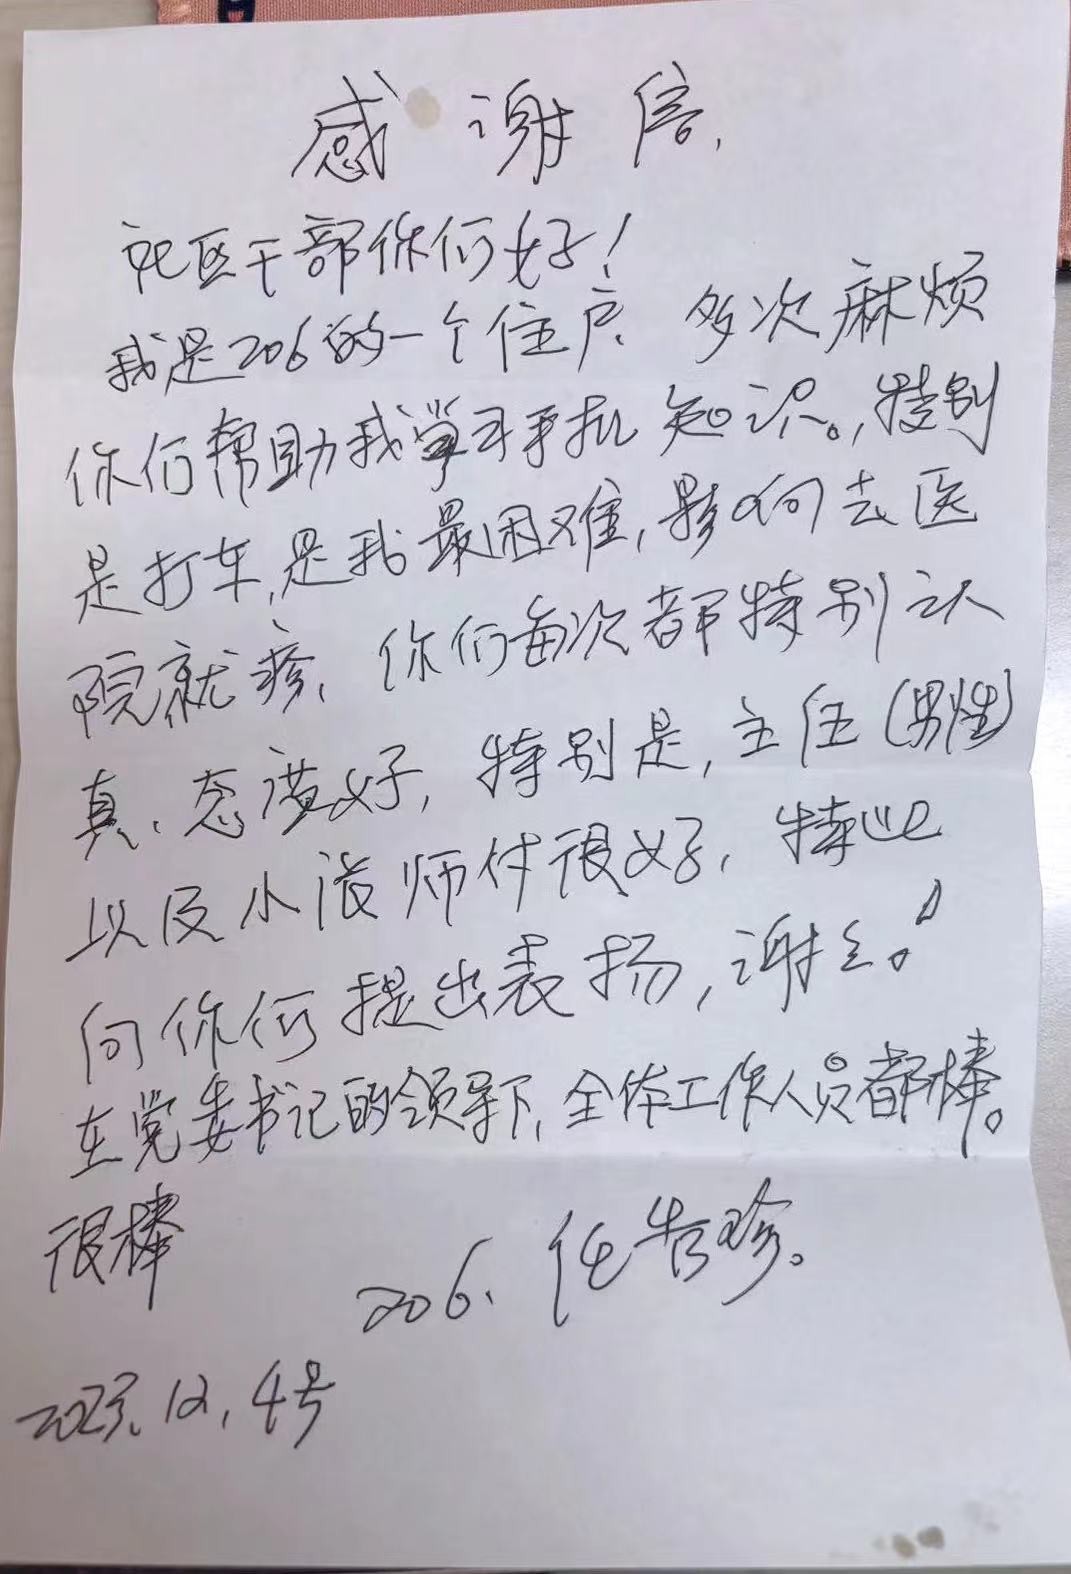 感谢信.
社区干部你们好！
我是206的一个住户、多次麻烦
你们帮助我学习手机知识。,特别
是打车,是我最困难,影响去医
院就疹、你们每次都特别认
真、态度好,特别是,主任(男性)
以及小 师付很好,特此
向你们提出表扬,谢谢。
在党委书记的领导下,全体工作人员都棒。
很棒
206、任 珍。
2023、12,4号